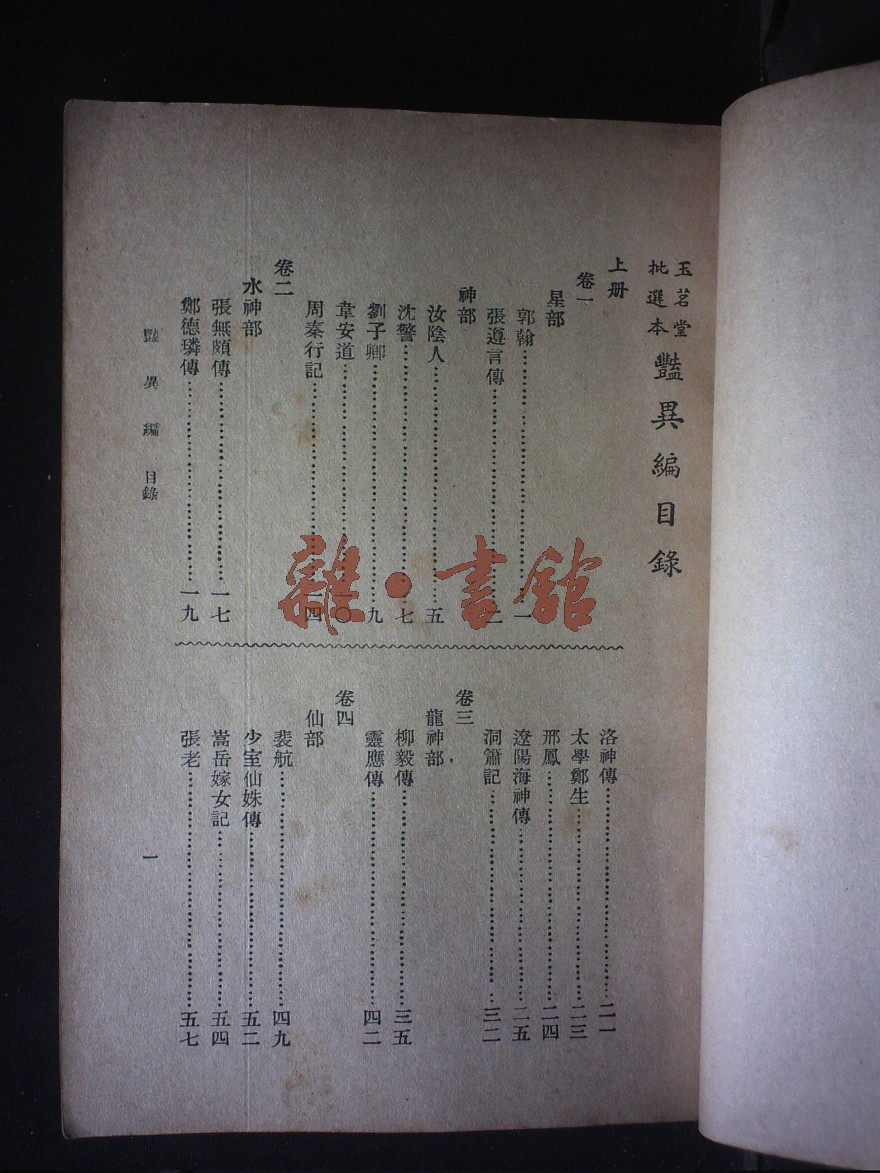 玉茗堂批選本 豔異編目錄
上册
卷一
星部
郭翰……一
張遵言傳……二
神部
汝陰人……五
沈警……七
劉子卿……九
韋安道……一〇
周秦行記……一四
卷二
水神部
張無頗傳……一七
鄭德璘傳……一九
洛神傳……二一
太學鄭生……二三
邢鳳……二四
遼陽海神傳……二五
洞簫記……三二
卷三
龍神部
柳毅傳……三五
靈應傳……四二
卷四
仙部
裴航……四九
少室仙姝傳……五二
嵩岳嫁女記……五四
張老……五七
豔異編 目錄
一
雜·書館